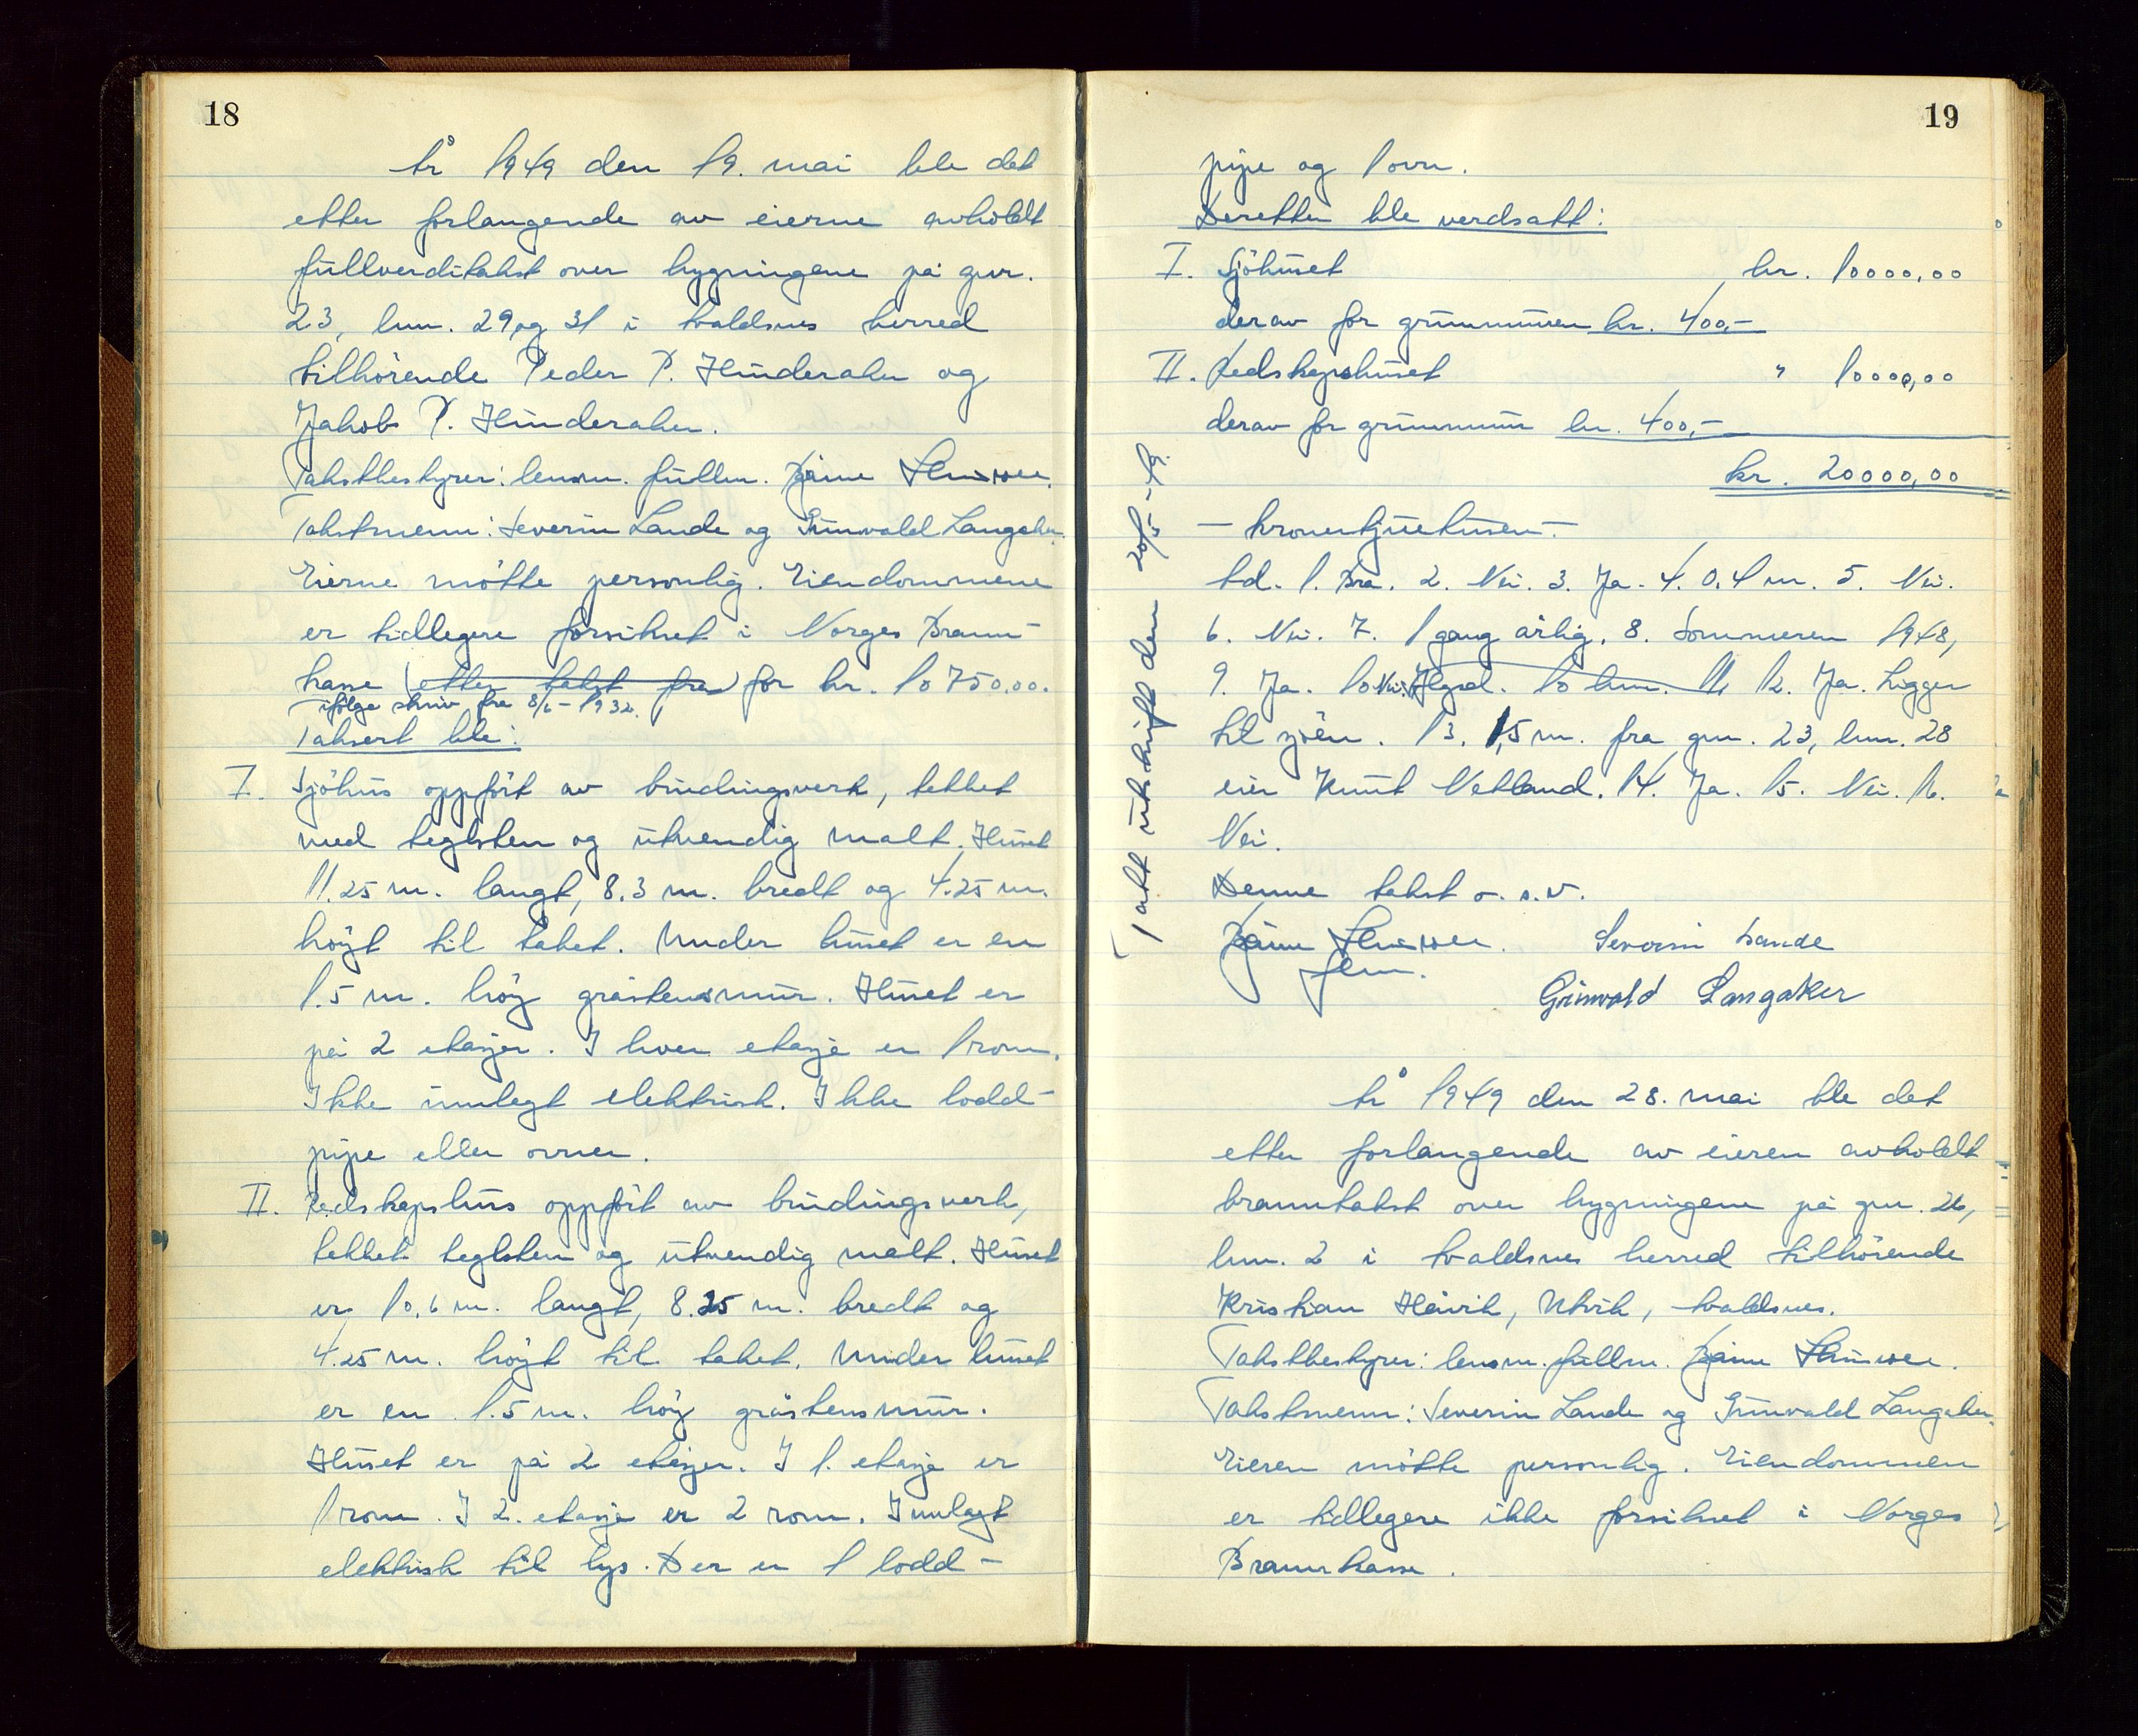 18
År 1949 den 19. mai ble det
etter forlangende av eierne avholdt
fullverditakst over bygningene på gnr.
23, bnr. 29 og 31 i Avaldsnes herred
tilhörende Peder P. Hinderaker og
Jakob P. Hinderaker.
Takstbestyrer: lensm. fullm.
Takstmenn: Severin Lande og Grunvald Langaker.
Eierne mötte personlig. Eiendommene
er tidligere forsikret i Norges Brann-
kasse (etter takst fra) for kr. 10750.00.
ifölge skriv fra 8/6-1932.
Taksert ble:
I. Sjöhus oppfört av bindingsverk, tekket
med teglsten og utvendig malt. Huset
11.25 m. langt, 8.3 m. bredt og 4.25 m.
höyt til taket. Under huset er en
1.5 m. höy gråstensmur. Huset er
på 2 etasjer. I hver etasje er 1 rom.
Ikke innlegt elektrisk. Ikke lodd-
pipe eller ovner.
II. Redskapshus oppfört av bindingsverk,
tekket teglsten og utvendig malt. Huset
er 10.6 m. langt, 8.25 m. bredt og
4.25 m. höyt til taket. Under huset
er en 1.5 m. höy gråstensmur.
Huset er på 2 etasjer. I 1. etasje er
1 rom. I 2. etasje er 2 rom. Innlagt
elektrisk til lys. Der er 1 lodd-
19
pipe og 1 ovn.
Deretter ble verdsatt:
I. Sjöhuset kr. 10000,00
derav for grunnmuren kr. 400,-
II. Redskapshuset " 10000,00
derav for grunnmur kr. 400,-
kr. 20000,00
- kronertjuetusen -
Ad. 1. Bra. 2. Nei. 3. Ja. 4. 0.4 m. 5. Nei.
6. Nei. 7. 1 gang årlig. 8. Sommeren 1948,
9. Ja. 10 Nei. 11. 12. Ja. Ligger
til sjöen. 13. 1,5 m. fra gnr. 23, bnr. 28
eier Knut Vetland. 14. Ja. 15. Nei. 16.
Nei.
Denne takst o.s.v.
Severin Lande
flm.
Grunvald Langaker
Tatt utskrift den 20/5-49.
År 1949 den 28. mai ble det
etter forlangende av eieren avholdt
branntakst over bygningene på gnr. 26,
bnr. 2 i Avaldsnes herred tilhörende
Kristian Håvik, Utvik, Avaldsnes.
Takstbestyrer: lensm. fullm.
Takstmenn: Severin Lande og Grunvald Langaker.
Eieren mötte personlig. Eiendommen
er tidligere ikke forsikret i Norges
Brannkasse.